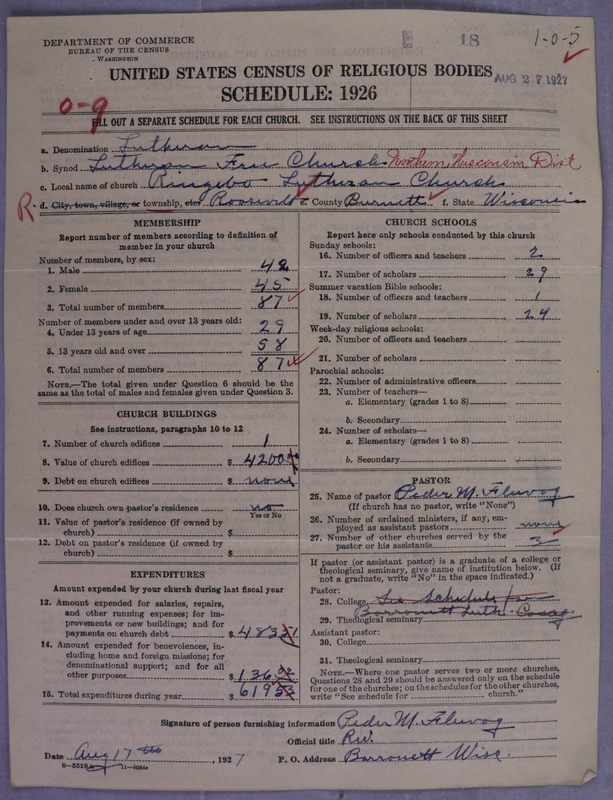 DEPARTMENT OF COMMERCE
BUREAU OF THE CENSUS
WASHINGTON
18
1-0-5
UNITED STATES CENSUS OF RELIGIOUS BODIES
AUG 27 1927
SCHEDULE: 1926
0-9
FILL OUT A SEPARATE SCHEDULE FOR EACH CHURCH. SEE INSTRUCTIONS ON THE BACK OF THIS SHEET
a. Denomination Lutheran
b. Synod Lutheran Free Church Northern Wisconsin Dist
c. Local name of church Ringebo Lutheran Church
R d. City, town, village, or township, etc. Roosevelt e. County Burnett f. State Wisconsin
MEMBERSHIP
Report number of members according to definition of
member in your church
Number of members, by sex:
1. Male 42
2. Female 45
3. Total number of members 87
Number of members under and over 13 years old:
4. Under 13 years of age 29
5. 13 years old and over 58
6. Total number of members 87
NOTE.—The total given under Question 6 should be
same as the total of males and females given under Question 3.
CHURCH BUILDINGS
See instructions, paragraphs 10 to 12
7. Number of church edifices 1
8. Value of church edifices $ 4200
9. Debt on church edifices $ none
10. Does church own pastor's residence no
Yes or No
11. Value of pastor's residence (if owned by
church) $
12. Debt on pastor's residence (if owned by
church) $
EXPENDITURES
Amount expended by your church during last fiscal year
13. Amount expended for salaries, repairs,
and other running expenses; for im-
provements or new buildings; and for
payments on church debt $ 483
14. Amount expended for benevolences, in-
cluding home and foreign missions; for
denominational support; and for all
other purposes $ 136
15. Total expenditures during year $ 619
CHURCH SCHOOLS
Report here only schools conducted by this church
Sunday schools:
16. Number of officers and teachers 2
17. Number of scholars 29
Summer vacation Bible schools:
18. Number of officers and teachers 1
19. Number of scholars 24
Week-day religious schools:
20. Number of officers and teachers
21. Number of scholars
Parochial schools:
22. Number of administrative officers
23. Number of teachers—
a. Elementary (grades 1 to 8)
b. Secondary
24. Number of scholars—
a. Elementary (grades 1 to 8)
b. Secondary
PASTOR
25. Name of pastor Peder M. Fluvog
(If church has no pastor, write "None")
26. Number of ordained ministers, if any, em-
ployed as assistant pastors none
27. Number of other churches served by the
pastor or his assistants 3
If pastor (or assistant pastor) is a graduate of a college or
theological seminary, give name of institution below. (If
not a graduate, write "No" in the space indicated.)
Pastor:
28. College See Schedule for
Barronett Luth. Cong
29. Theological seminary
Assistant pastor:
30. College
31. Theological seminary
NOTE.—Where one pastor serves two or more churches,
Questions 28 and 29 should be answered only on the schedule
for one of the churches; on the schedules for the other churches,
write "See schedule for church."
Signature of person furnishing information Peder M. Fluvog
Official title Rev.
Date Aug 17th, 1927 P. O. Address Barronett Wisc.